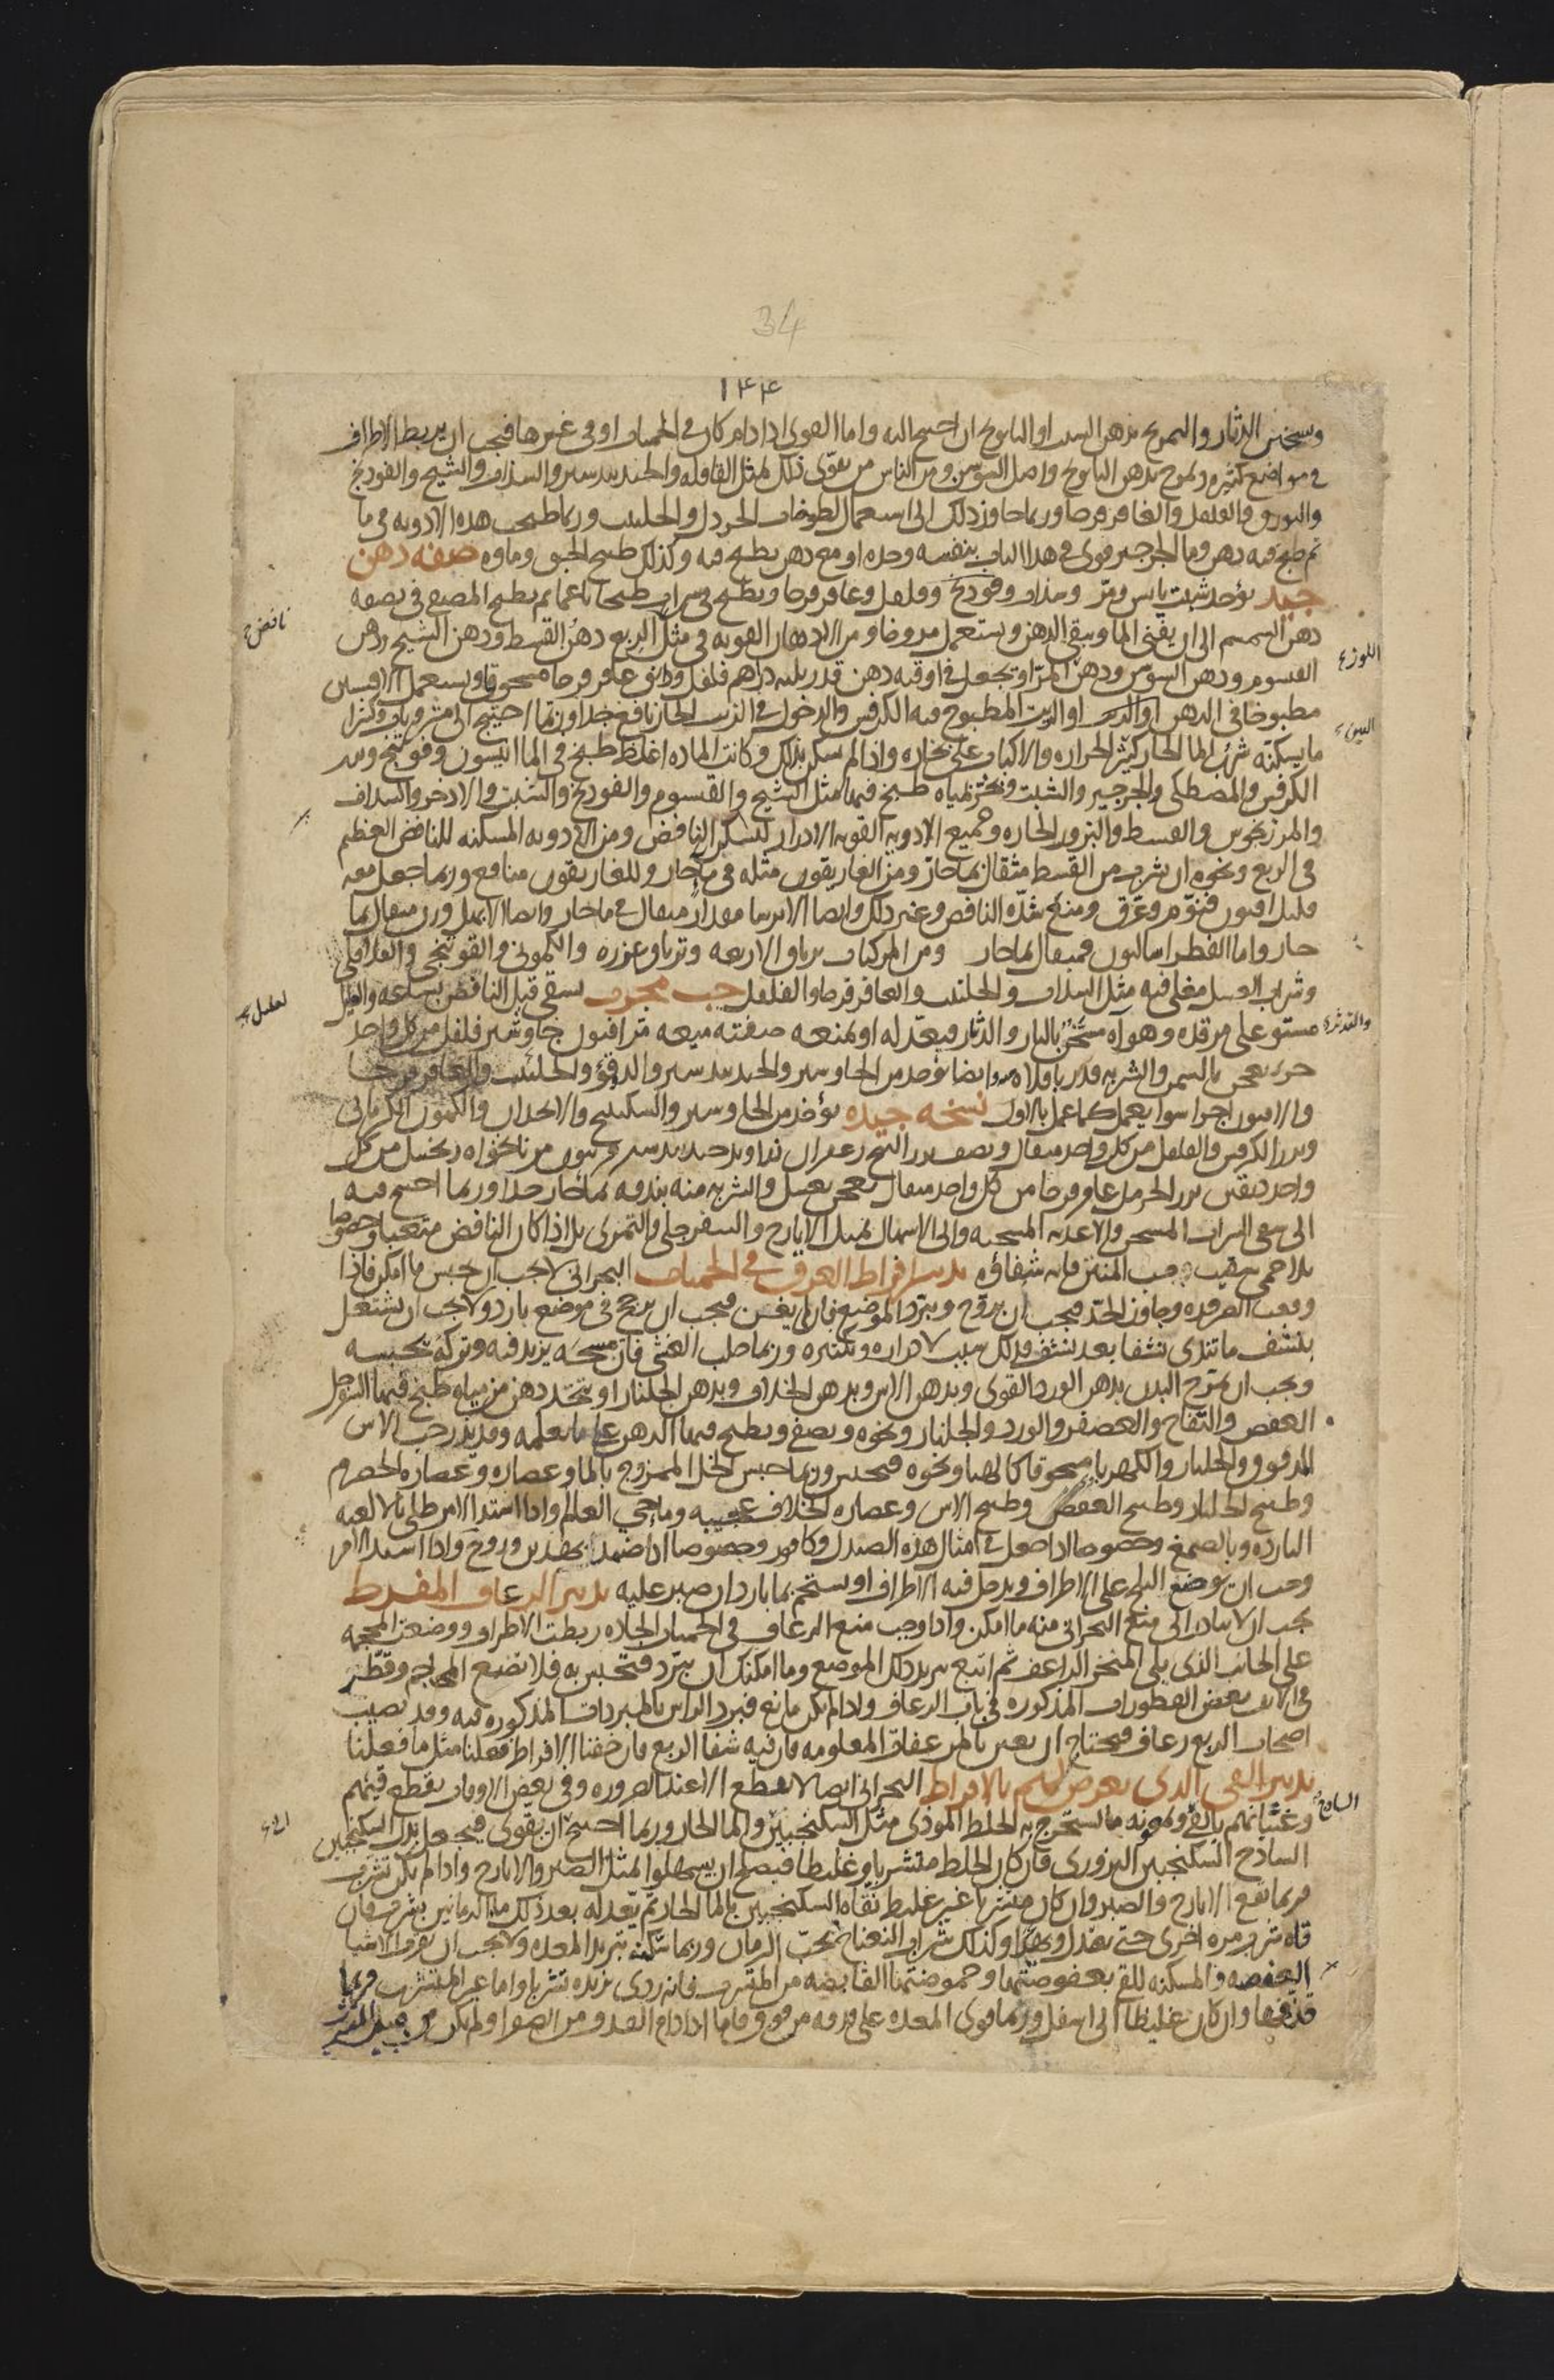 34
١٤٤
وتسخين الدثار والتمريخ بدهن الشبت او البابونج ان احتيج اليه واما القوى اذا دام كان فى الحميات او فى غيرها فيجب ان يربط الاطراف
فى مواضع كثيره ويمرخ بدهن البابونج واصل السوسن ومن الناس من يقوى ذلك بمثل القاقله والجندبيدستر والسذاب والشيح والفودنج
والبورق والفلفل والعاقرقرحا وربما جاوز ذلك الى استعمال لطوخات الخردل والحلتيت وربما طبخت هذه الادويه فى ما
ثم طبخ فيه دهن وما الجرجير قوى فى هذا الباب بنفسه وحده او مع دهن يطبخ فيه وكذلك طبيخ الحبق وماوه صفه دهن
جيد يؤخذ شبت يابس ومر وسذاب وفودنج وفلفل وعاقرقرحا ويطبخ فى شراب طبخا ناعما ثم يطبخ المصفى فى نصفه
نافض
دهن السمسم الى ان يفنى الما ويبقى الدهن ويستعمل مروخا ومن الادهان القويه فى مثل الربع دهن القسط ودهن الشيح ودهن
اللوز
القيسوم ودهن السوسن ودهن المر او يجعل فى اوقيه دهن قدر ثلثه دراهم فلفل ودانق عاقرقرحا مسحوقا ويستعمل
مطبوخا فى الدهن او الزيت المطبوخ فيه الكرفس والدخول فى الزيت الحار نافع جدا وربما احتيج الى
ما يسكنه شرب الما الحار كثير الحراره والاكباب على بخاره واذا لم يسكن بذلك وكانت الماده اغلظ طبخ فى الما انيسون وفودنج وبزر
الكرفس والمصطكى والجرجير والشبت وبخر بمياه طبخ فيها مثل الشيح والقيسوم والفودنج والشبت والاذخر والسذاب
والمرزنجوش والقسط والبزور الحاره وجميع الادويه القويه الادرار تسكن النافض ومن الادويه المسكنه للنافض العظيم
فى الربع ونحوه ان يشرب من القسط مثقال بما حار ومن الغاريقون مثله فى ما حار وللغاريقون منافع وربما جعل معه
قليل افيون فنوم وعرق ومنع شده النافض وغير ذلك وايضا الايرسا مقدار مثقال فى ما حار وايضا الابهل وزن مثقال بما
حار واما الفطراساليون فمثقال بما حار ومن المركبات ترياق الاربعه وترياق عزره والكمونى والفوتنجى والفلافلى
وشراب العسل مغلى فيه مثل السذاب والحلتيت والعاقرقرحا والفلفل حب مجرب يسقى قبل النافض بساعه والعليل
مستو على مرقده وهواه مسخن بالنار والدثار فيعدله او يمنعه صفته ميعه مر افيون جاوشير فلفل من كل واحد
جزء يعجن بالسمن والشربه قدر باقلاه وايضا يؤخذ من الجاوشير والجندبيدستر والدوقو والحلتيت والعاقرقرحا
والافيون اجزا سوا يعمل كما عمل بالاول نسخه جيده يؤخذ من الجاوشير والسكبينج والانجدان والكمون الكرمانى
وبزر الكرفس والفلفل من كل واحد مثقال ونصف بزر البنج زعفران زراوند جندبيدستر فربيون مر نانخواه زنجبيل من كل
واحد دانقين بزر الحرمل عاقرقرحا من كل واحد مثقال يعجن بعسل والشربه منه بندقه بما حار جدا وربما احتيج فيه
الى سقى الشراب المسخن والاغذيه المسخنه والى الاسهال بمثل الايارج والسفرجلى والتمرى بلا اذا كان النافض متعبا وخصوصا
بلا حمى فهيئت وحب المنتن فانه شفاؤه تدبير افراط العرق فى الحميات البحرانى لا يجب ان يحبس ما امكن فاذا
وقعت الضروره وجاوز الحد فيجب ان يروح ويبرد الموضع فان لم يغن فيجب ان يروح فى موضع بارد ولا يجب ان يشتغل
بنشف ما تندى نشفا بعد نشف فذلك سبب لادراره وتكثيره وربما جلب الغشى فان مسحه يزيد فيه وتركه يحبسه
ويجب ان يمرخ البدن بدهن الورد القوى وبدهن الاس وبدهن الخلاف وبدهن الجلنار او يتخذ دهن من مياه طبخ فيها السفرجل
العفص والتفاح والعصفر والورد والجلنار ونحوه ويصفى ويطبخ فيها الدهن على ما يعلمه وقد يذر حب الاس
المدقوق والجلنار والكهربا مسحوقا كالهبا ونحوه فيحبس وربما حبس الخل الممزوج بالما وعصاره وعصاره الحصرم
وطبيخ الجلنار وطبيخ العفص وطبيخ الاس وعصاره الخلاف عجيبه وما حى العالم واذا اشتد الامر طلى بالالعبه
البارده وبالصمغ وخصوصا اذا جعل فى امثال هذه الصندل وكافور وخصوصا اذا ضمد بهذين وروح واذا اشتد الامر
وجب ان يوضع الثلج على الاطراف ويدخل فيه الاطراف او يستحم بما بارد ان صبر عليه تدبير الرعاف المفرط
يجب ان لا يبادر الى منع البحرانى منه ما امكن واذا وجب منع الرعاف فى الحميات الحاده ربطت الاطراف ووضعت المحجمه
على الجانب الذى يلى المنخر الراعف ثم اتبع بتبريد ذلك الموضع وما امكنك ان يبرد فتحبس به فلا تضع المحاجم وقطر
فى الانف بعض القطورات المذكوره فى باب الرعاف واذا لم يكن مانع فبرد الراس بالمبردات المذكوره فيه وقد يصيب
اصحاب الربع رعاف فيحتاج ان يعين بالمرعفات المعلومه فان فيه شفا الربع فان خفنا الافراط فعلنا مثل ما فعلنا
تدبير القى الذى يعرض لهم بالافراط البحرانى ايضا لا يقطع الا عند الضروره وفى بعض الاوقات يقطع قيئهم
وغثيانهم بالقى ومعونه ما يستخرج به الخلط الموذى مثل السكنجبين والما الحار وربما احتيج ان يقوى فيجعل بدل السكنجبين
الساذج السكنجبين البزورى فان كان الخلط متشربا وغليظا فيصلح ان يسهلوا بمثل الصبر والايارج واذا لم يكن تشرب
فربما نفع الايارج والصبر وان كان متشربا غير غليظ نقاه السكنجبين بالما الحار ثم يعدله بعد ذلك ما الرمانين يشرب فان
قاه شرب مره اخرى حتى يعتدل ويهدا وكذلك شراب النعناع بحب الرمان وربما سكنه تبريد المعده ولا يجب ان يقرب الاشيا
العفصه والمسكنه للقى بعفوصتها وحموضتها القابضه من المتشرب فانه ردى يزيده تشربا واما غير المتشرب فربما
قذفها وان كان غليظا الى اسفل وربما قوى المعده على قذفه من فوق فاما اذا دام القذف ومن الصفرا ولم يكن